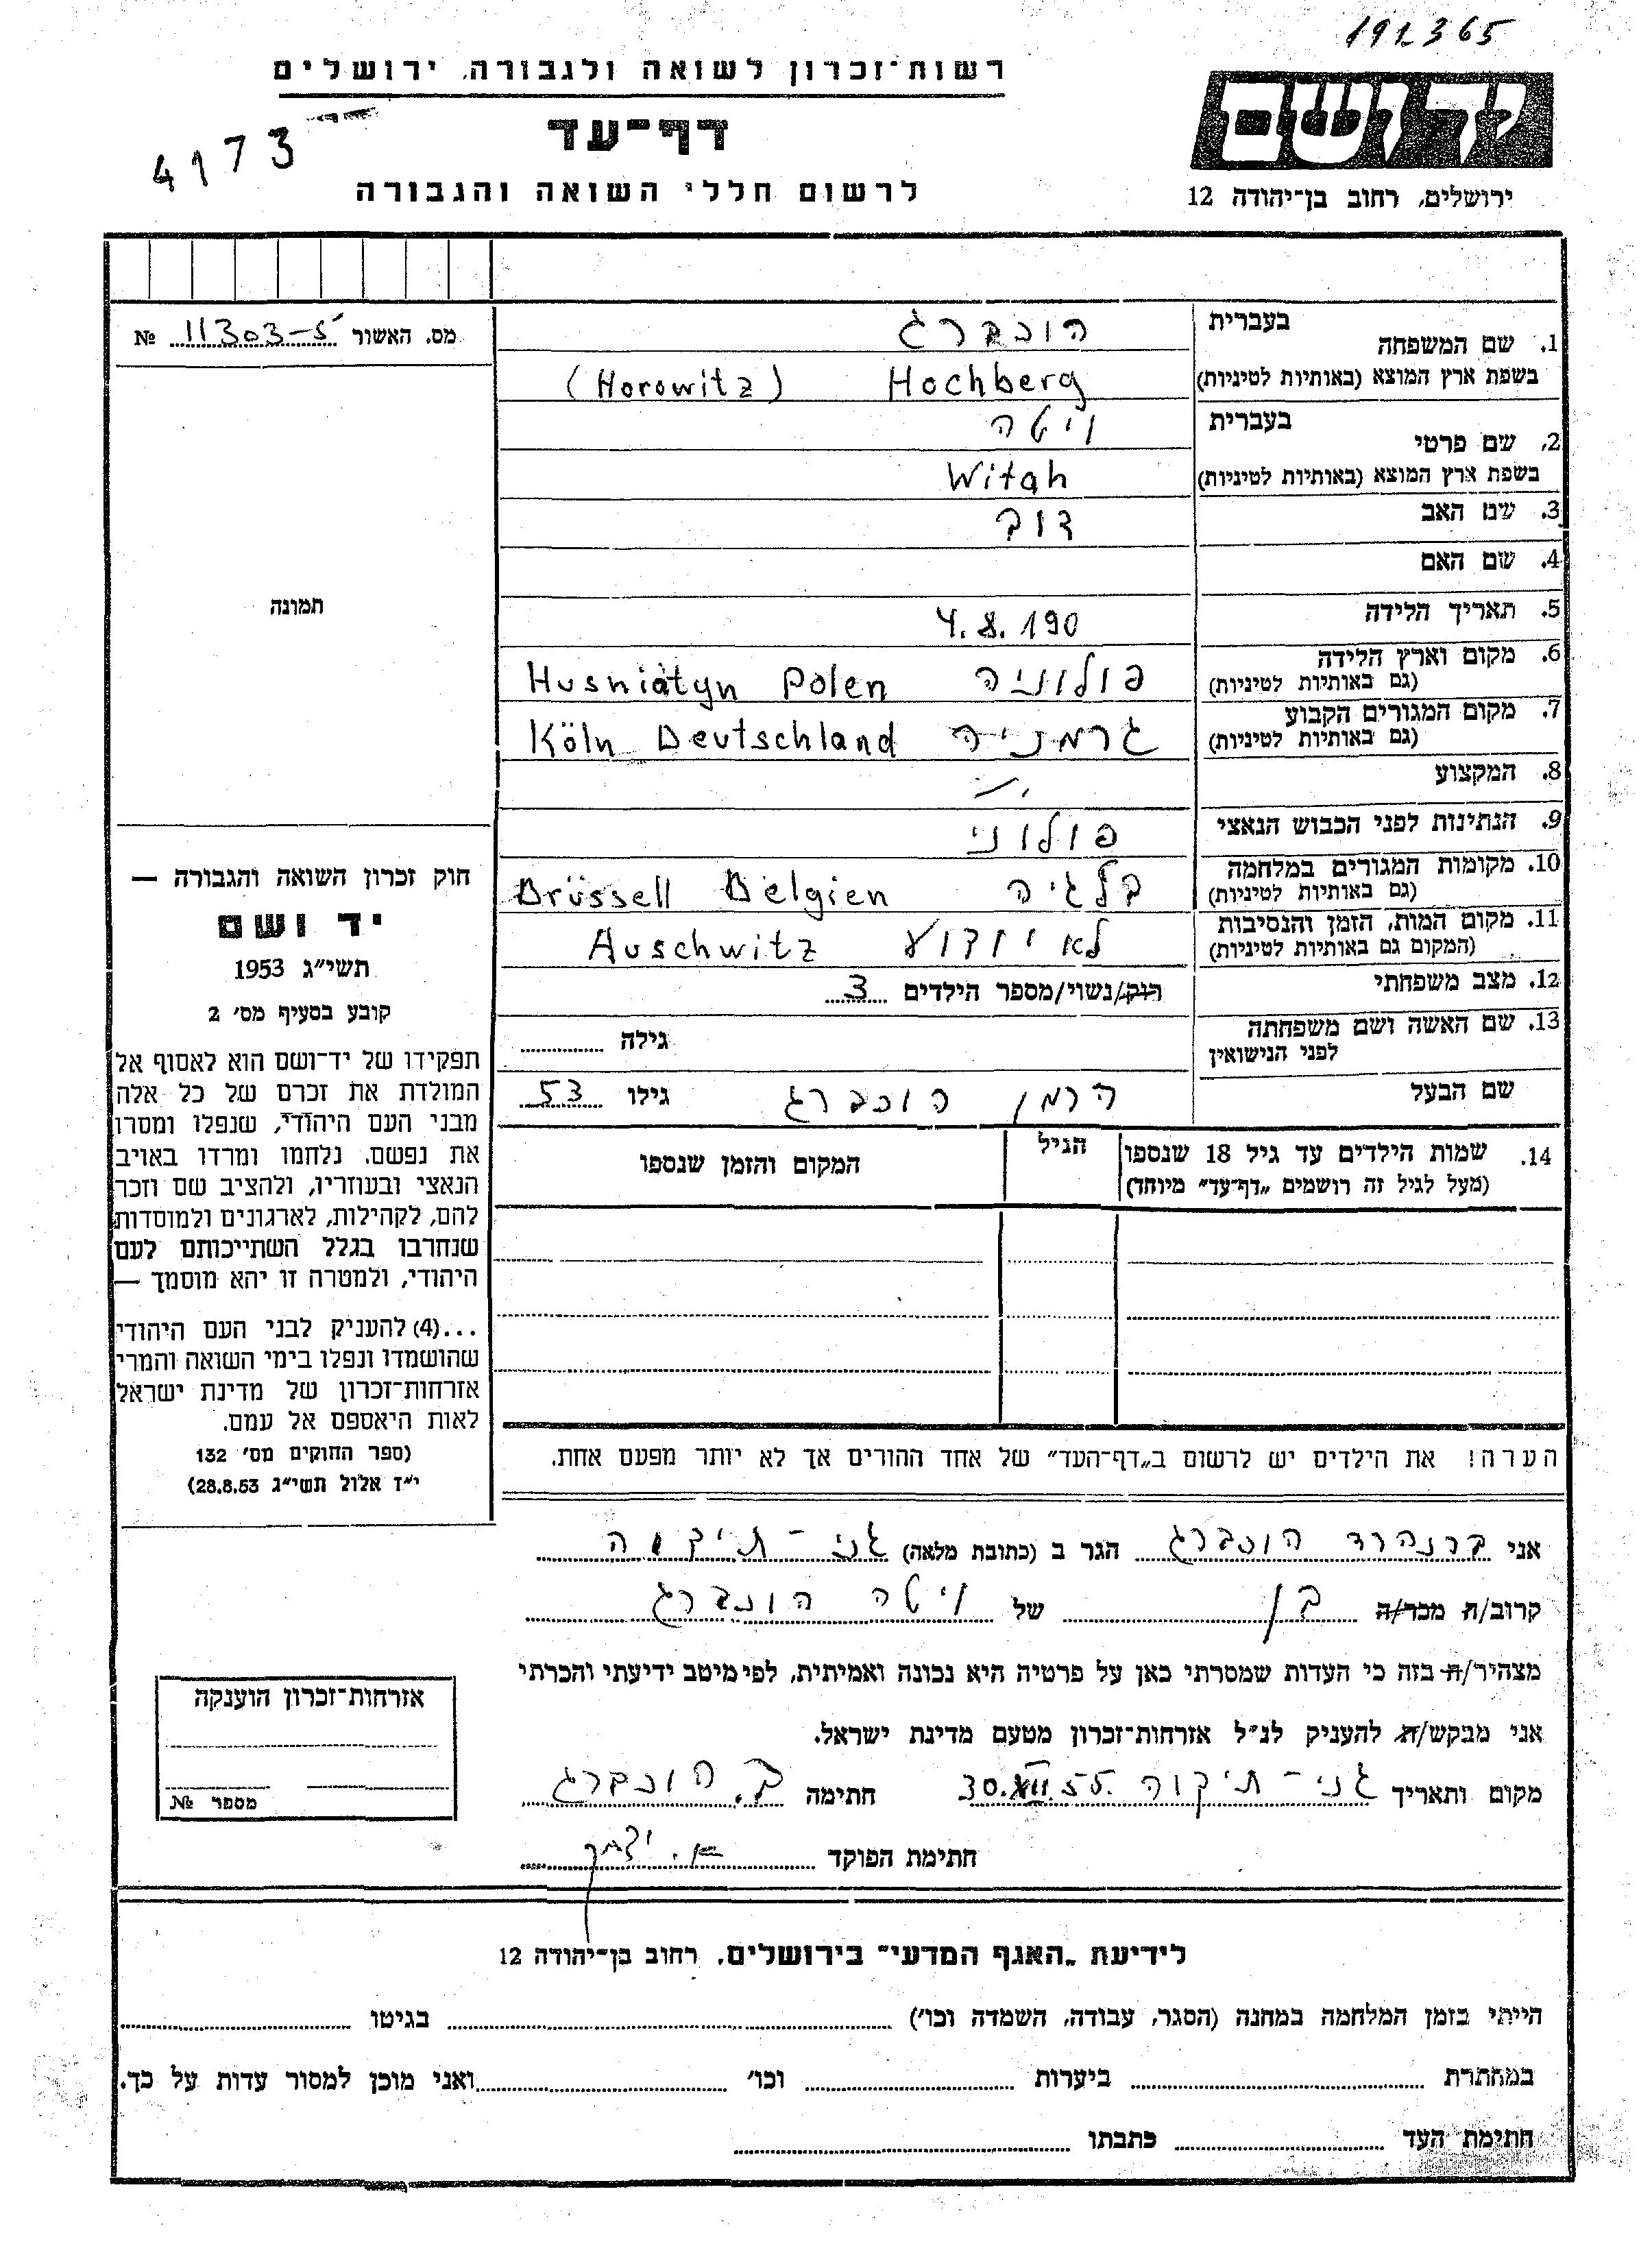 191365
רשות־זכרון לשואה ולגבורה, ירושלים
דף־עד
4173
לרשום חללי השואה והגבורה
יד ושם
ירושלים, רחוב בן־יהודה 12
מס. האשור 11303-5 №
תמונה
1. שם המשפחה בעברית הוכברג
בשפת ארץ המוצא (באותיות לטיניות) Hochberg (Horowitz)
2. שם פרטי בעברית ויטה
בשפת ארץ המוצא (באותיות לטיניות) Witah
3. שם האב דוב
4. שם האם
5. תאריך הלידה 4.8.190
6. מקום וארץ הלידה (גם באותיות לטיניות) פולוניה Husniatyn Polen
7. מקום המגורים הקבוע (גם באותיות לטיניות) גרמניה Köln Deutschland
8. המקצוע
9. הנתינות לפני הכבוש הנאצי פולוני
10. מקומות המגורים במלחמה (גם באותיות לטיניות) בלגיה Brüssell Belgien
11. מקום המות, הזמן והנסיבות (המקום גם באותיות לטיניות) לא יודוע Auschwitz
12. מצב משפחתי רוק/נשוי/מספר הילדים 3
13. שם האשה ושם משפחתה לפני הנישואין גילה
שם הבעל הרמן הוכברג גילו 53
14. שמות הילדים עד גיל 18 שנספו הגיל המקום והזמן שנספו
(מעל לגיל זה רושמים „דף־עד" מיוחד)
הערה! את הילדים יש לרשום ב„דף־העד" של אחד ההורים אך לא יותר מפעם אחת.
חוק זכרון השואה והגבורה —
יד ושם
תשי"ג 1953
קובע בסעיף מס' 2
תפקידו של יד־ושם הוא לאסוף אל
המולדת את זכרם של כל אלה
מבני העם היהודי, שנפלו ומסרו
את נפשם, נלחמו ומרדו באויב
הנאצי ובעוזריו, ולהציב שם וזכר
להם, לקהילות, לארגונים ולמוסדות
שנחרבו בגלל השתייכותם לעם
היהודי, ולמטרה זו יהא מוסמך —
...(4) להעניק לבני העם היהודי
שהושמדו ונפלו בימי השואה והמרי
אזרחות־זכרון של מדינת ישראל
לאות היאספם אל עמם.
(ספר החוקים מס' 132
י"ז אלול תשי"ג 28.8.53)
אני ברנהרד הוכברג הגר ב (כתובת מלאה) גני-תיקוה
קרוב/ה מכר/ה בן של ויטה הוכברג
מצהיר/ה בזה כי העדות שמסרתי כאן על פרטיה היא נכונה ואמיתית, לפי מיטב ידיעתי והכרתי
אני מבקש/ת להעניק לנ"ל אזרחות־זכרון מטעם מדינת ישראל.
מקום ותאריך גני-תיקוה 30.XII.55 חתימה ב. הוכברג
חתימת הפוקד
אזרחות־זכרון הוענקה
מספר №
לידיעת „האגף המדעי" בירושלים, רחוב בן־יהודה 12
הייתי בזמן המלחמה במחנה (הסגר, עבודה, השמדה וכו') בגיטו
במחתרת ביערות וכו' ואני מוכן למסור עדות על כך.
חתימת העד כתבתו